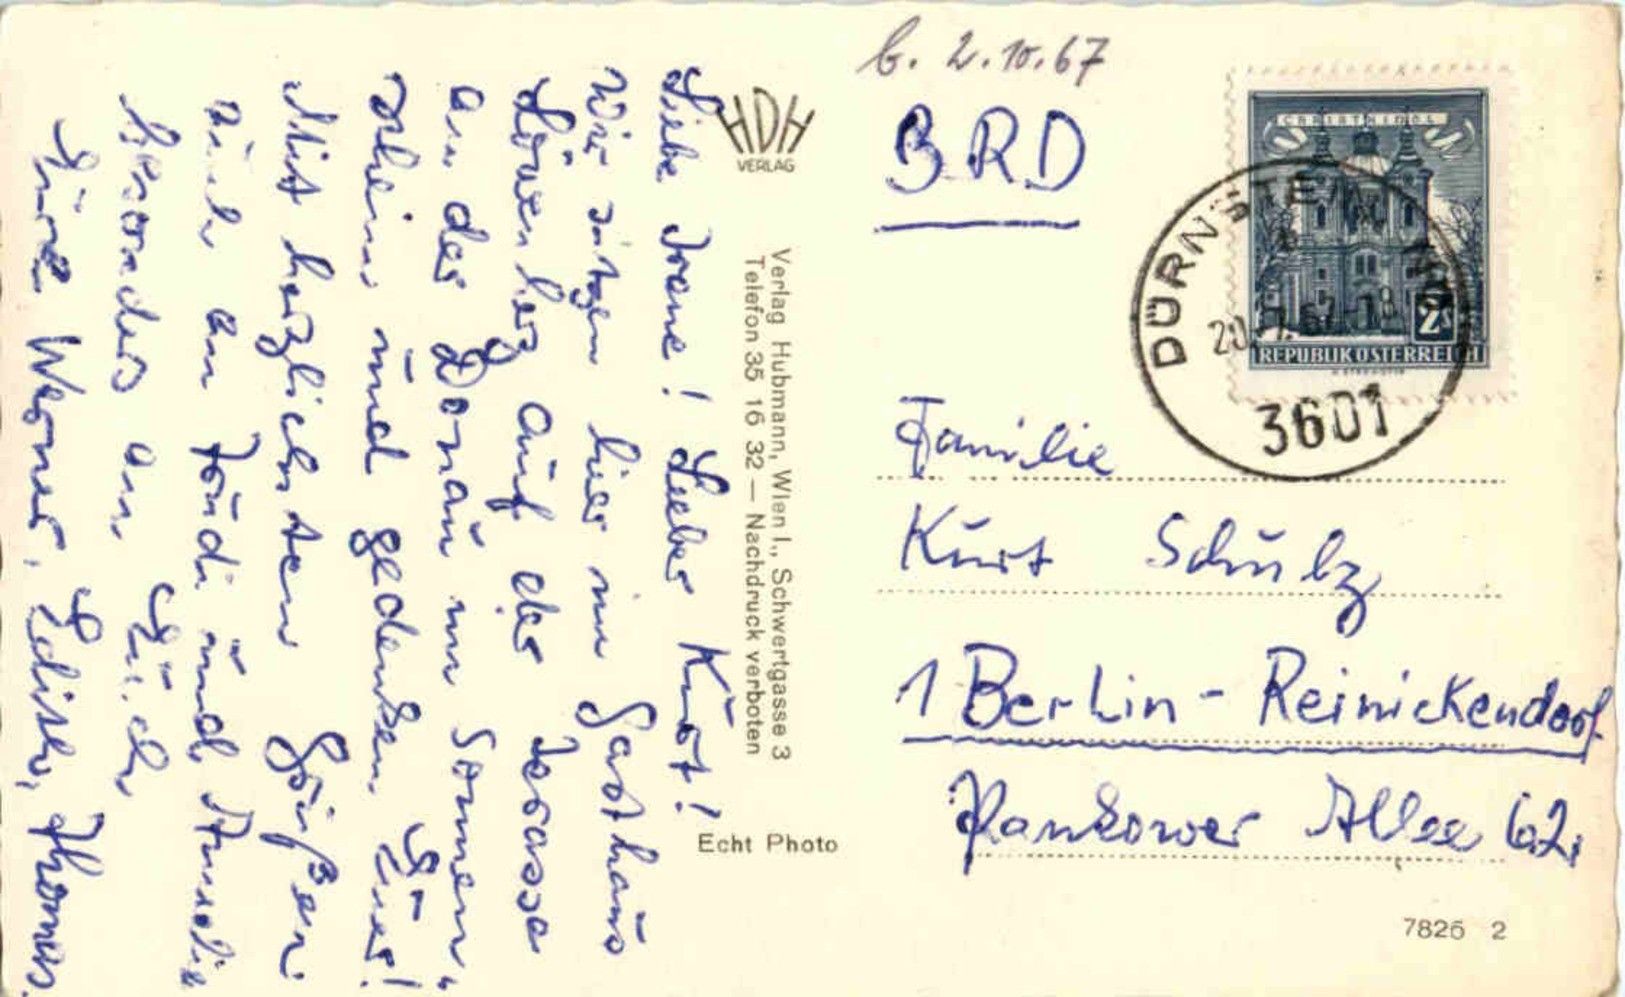 b. 2.10.67
BRD
CHRISTKINDL
REPUBLIK ÖSTERREICH
DÜRNSTEIN
3601
Familie
Kurt Schulz
1 Berlin-Reinickendorf
Pankower Allee 62,
7826 2
HDH
VERLAG
Verlag Hubmann, Wien I., Schwertgasse 3
Telefon 35 16 32 — Nachdruck verboten
Echt Photo
Liebe Irene! Lieber Kurt!
Wir sitzen hier im Gasthaus
Löwenherz auf der Terasse
an der Donau im Sonnen-
schein und gedenken Euer!
Mit herzlichsten Grüßen
auch an Trudi und Amalie
besonders an Euch
Eure Werner, Edith, Thomas.